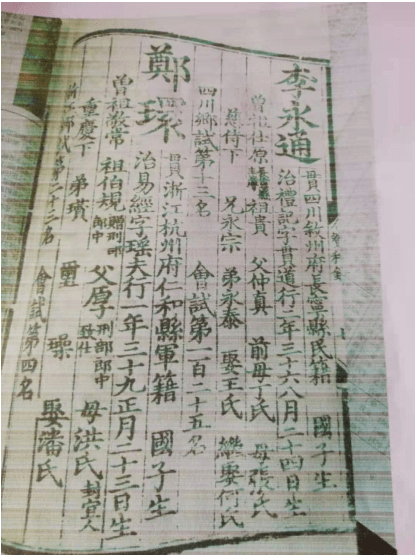 李永通
貫四川敘州府長寧縣民籍 國子生
治禮記字貫道行二年三十六八月二十四日生
曾祖仕原 祖貴 父仲真 前母丁氏 母張氏
慈侍下 兄永宗 弟永泰 娶王氏 繼娶何氏
四川鄉試第十三名 會試第一百二十五名
鄭環
貫浙江杭州府仁和縣軍籍 國子生
治易經字瑤夫行一年三十九正月二十三日生
曾祖敬常 祖伯規贈刑部郎中 父厚刑部郎中致仕 母洪氏封宜人
重慶下 弟瓚 璽 璪 娶潘氏
鄉試第二十三名 會試第四名